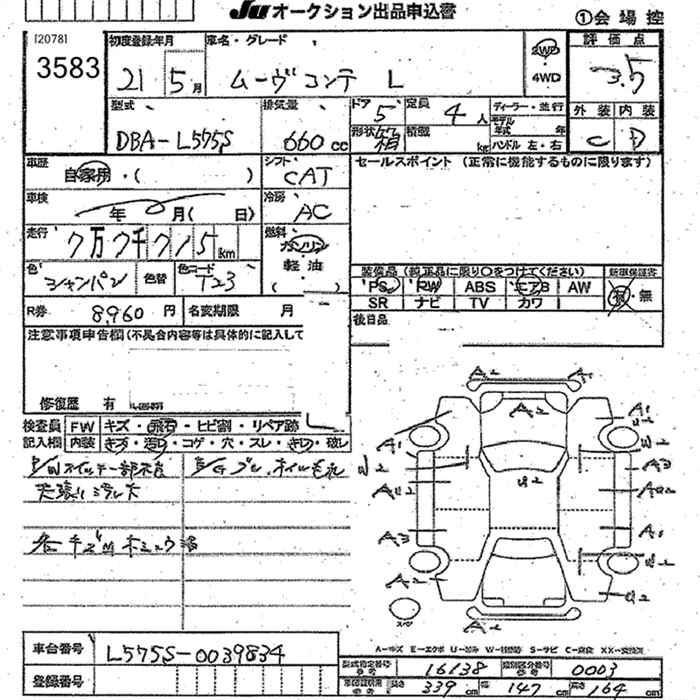 JU オークション出品申込書
①会場控
[2078]
3583
初度登録年月
21 5月
車名・グレード
ムーヴコンテ L
2WD
4WD
評価点
3.5
型式
DBA-L575S
排気量
660 cc
ドア 5
定員 4人
形状 箱
積載 kg
ディーラー・並行
モデル年式 年
ハンドル 左・右
外装 内装
C D
車歴
自家用・( )
シフト
CAT
セールスポイント (正常に機能するものに限ります)
車検
年 月( 日)
冷房
AC
走行
7万7千715km
燃料
ガソリン
軽油
( )
色
シャンパン
色替
色コード
T23
装備品 (純正品に限り○をつけてください)
新車保証書
PS PW ABS エアB AW
SR ナビ TV カワ
有・無
R券 8,960 円
名変期限 月
後日品
注意事項申告欄(不具合内容等は具体的に記入して
修復歴 有
検査員記入欄
FW キズ・飛石・ヒビ割・リペア跡
内装 キズ・汚れ・コゲ・穴・スレ・キレ・破レ
P/W スイッチ一部不良
E/G ブル、オイルもれ
天張り
各キズ
A2 A1
A2
A1 A1
W2 W2
A3
U2
AU2 AU2
A3 A1
W2
A2
A2
スペア
A-キズ E-エクボ U-凹み W-補修跡 S-サビ C-腐食 XX-交換済
車台番号 L575S-0039834
登録番号
型式指定番号 16138
類別区分番号 0003
長さ 339 cm 幅 147 cm 高さ 164 cm